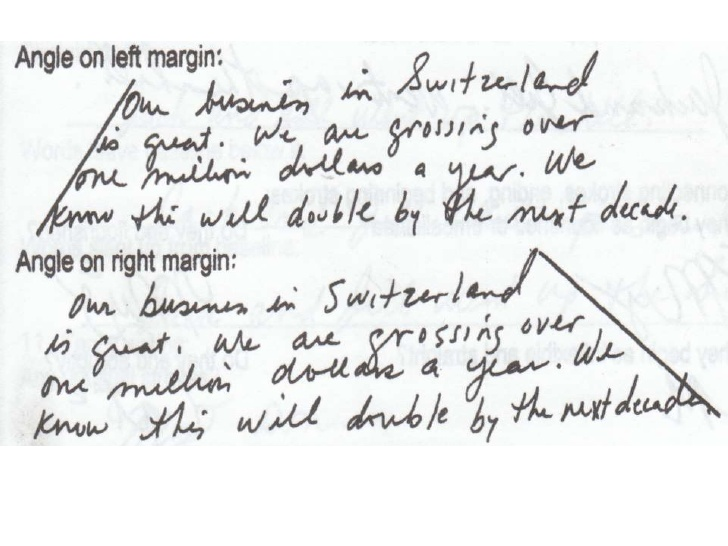 Angle on left margin:
Our business in Switzerland
is great. We are grossing over
one million dollars a year. We
know thi will double by the next decad.
Angle on right margin:
Our business in Switzerland
is great. We are grossing over
one million dollars a year. We
know this will double by the next decade